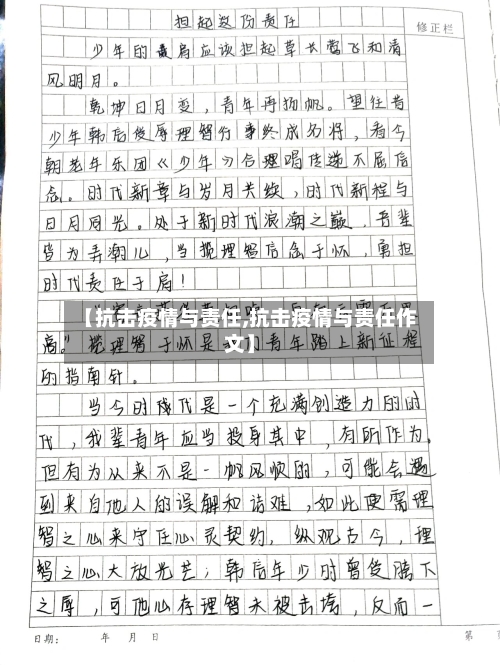 担起这份责任
修正栏
少年的肩应该担起草长莺飞和清
风明月。
乾坤日月变，青年再扬帆。望往昔
少年韩信受辱理智行事终成名将，看今
朝老年乐团《少年》合理唱传递不屈信
念。时代新章与岁月共续，时代新程与
日月同光。处于新时代浪潮之巅，吾辈
皆为弄潮儿，当揽理智信念于怀，勇担
时代责任于肩！
【抗击疫情与责任,抗击疫情与责任作
文】
高。"揽理智于怀是我们青年踏上新征程
的指南针。
当今时代是一个充满创造力的时
代，我辈青年应当投身其中，有所作为。
但有为从来不是一帆风顺的，可能会遇
到来自他人的误解和诘难，如此便需理
智之心来守住心灵契约。纵观古今，理
智之心大放光芒；韩信年少时曾受胯下
之辱，可他心存理智未被击垮，反而一
日期： 年 月 日 第